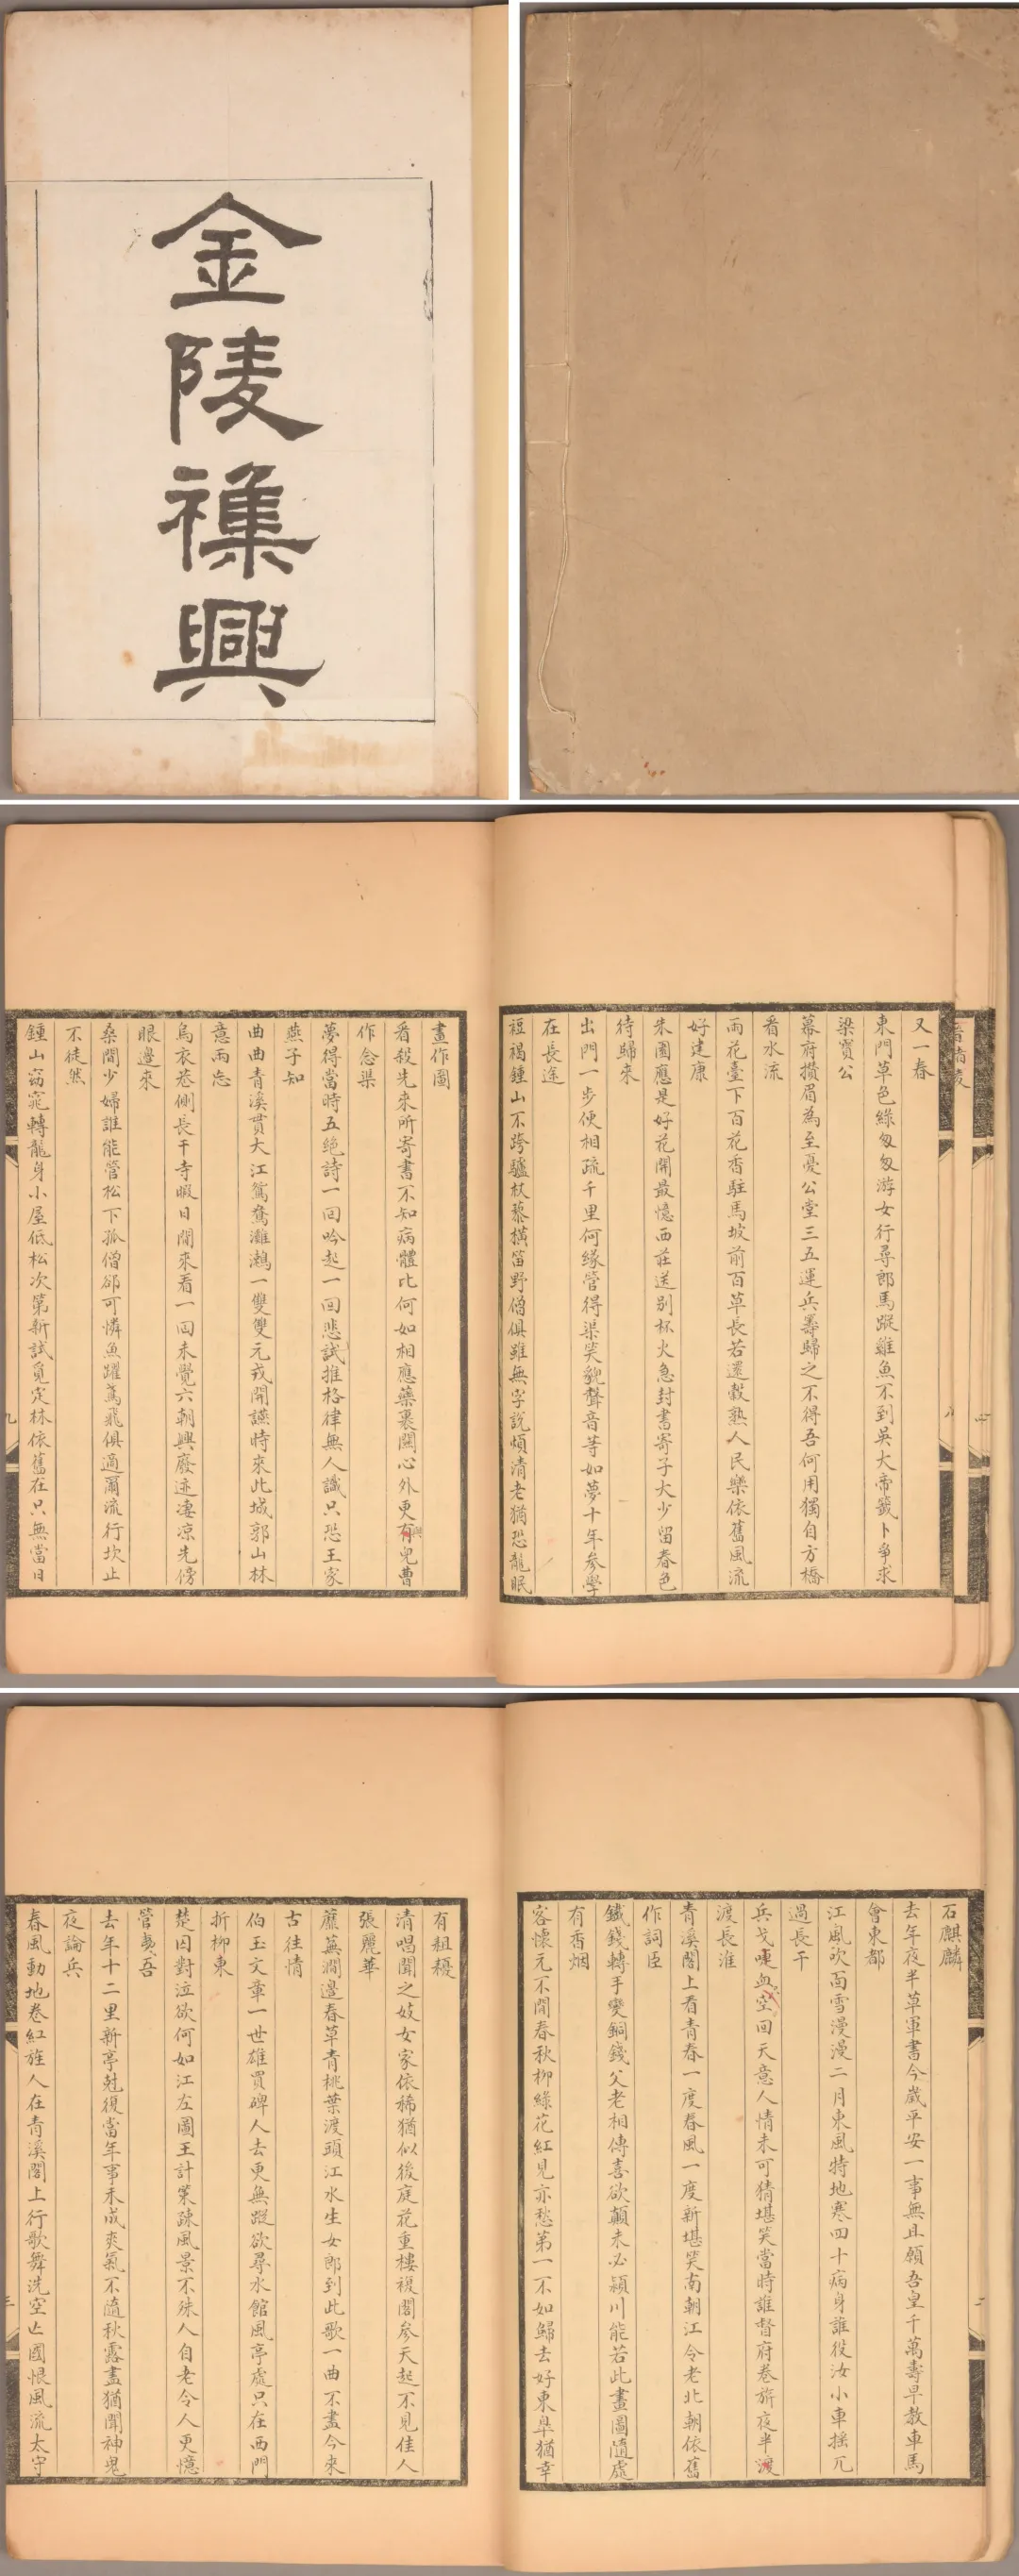 金陵襍興
又一春
東門草色綠匆匆游女行尋郎馬蹤雖魚不到吳大帝籤卜爭求
梁寶公
幕府攢眉為至憂公堂三五運兵籌歸之不得吾何用獨自方橋
看水流
雨花臺下百花香駐馬坡前百草長若還穀熟人民樂依舊風流
好建康
朱圉應是好花開最憶西莊送别杯火急封書寄子大少留春色
待歸來
出門一步便相疏千里何緣管得渠笑貌聲音等如夢十年參學
在長途
裋褐鍾山不跨驢杖藜橫笛野僧俱雖無字說煩清老猶恐龍眠
畫作圖
看殺先來所寄書不知病體比何如相應藥裹關心外更有兒曹
與
作念渠
夢得當時五絶詩一回吟起一回悲試推格律無人識只恐王家
燕子知
曲曲青溪貫大江鴛鴦灘鷀一雙雙元戎開讌時來此城郭山林
意兩忘
烏衣巷側長干寺暇日閒來看一回未覺六朝興廢迹凄凉先傍
眼邊來
桑間少婦誰能管松下孤僧郤可憐魚躍鳶飛俱適爾流行坎止
不徒然
鍾山窈窕轉龍身小屋低松次第新試覓定林依舊在只無當日
八
九
石麒麟
去年夜半草軍書今歲平安一事無且願吾皇千萬壽早教車馬
會東都
江風吹面雪漫漫二月東風特地寒四十病身誰役汝小車搖兀
過長干
兵戈喋血空回天意人情未可猜堪笑當時誰督府卷旂夜半渡
渡長淮
青溪閣上看青春一度春風一度新堪笑南朝江令老北朝依舊
作詞臣
鐵錢轉手變銅錢父老相傳喜欲顛未必潁川能若此畫圖隨處
有香烟
客懷元不閒春秋柳綠花紅見亦愁第一不如歸去好東臯猶幸
有耝耰
清唱聞之妓女家依稀猶似後庭花重樓複閣參天起不見佳人
張麗華
蘼蕪澗邊春草青桃葉渡頭江水生女郎到此歌一曲不盡今來
古往情
伯玉文章一世雄買碑人去更無蹤欲尋水館風亭處只在西門
折柳東
楚囚對泣欲何如江左圖王計策疎風景不殊人自老令人更憶
管夷吾
去年十二里新亭尅復當年事未成爽氣不隨秋露盡猶聞神鬼
夜論兵
春風動地卷紅旌人在青溪閣上行歌舞洗空亡國恨風流太守
二
三